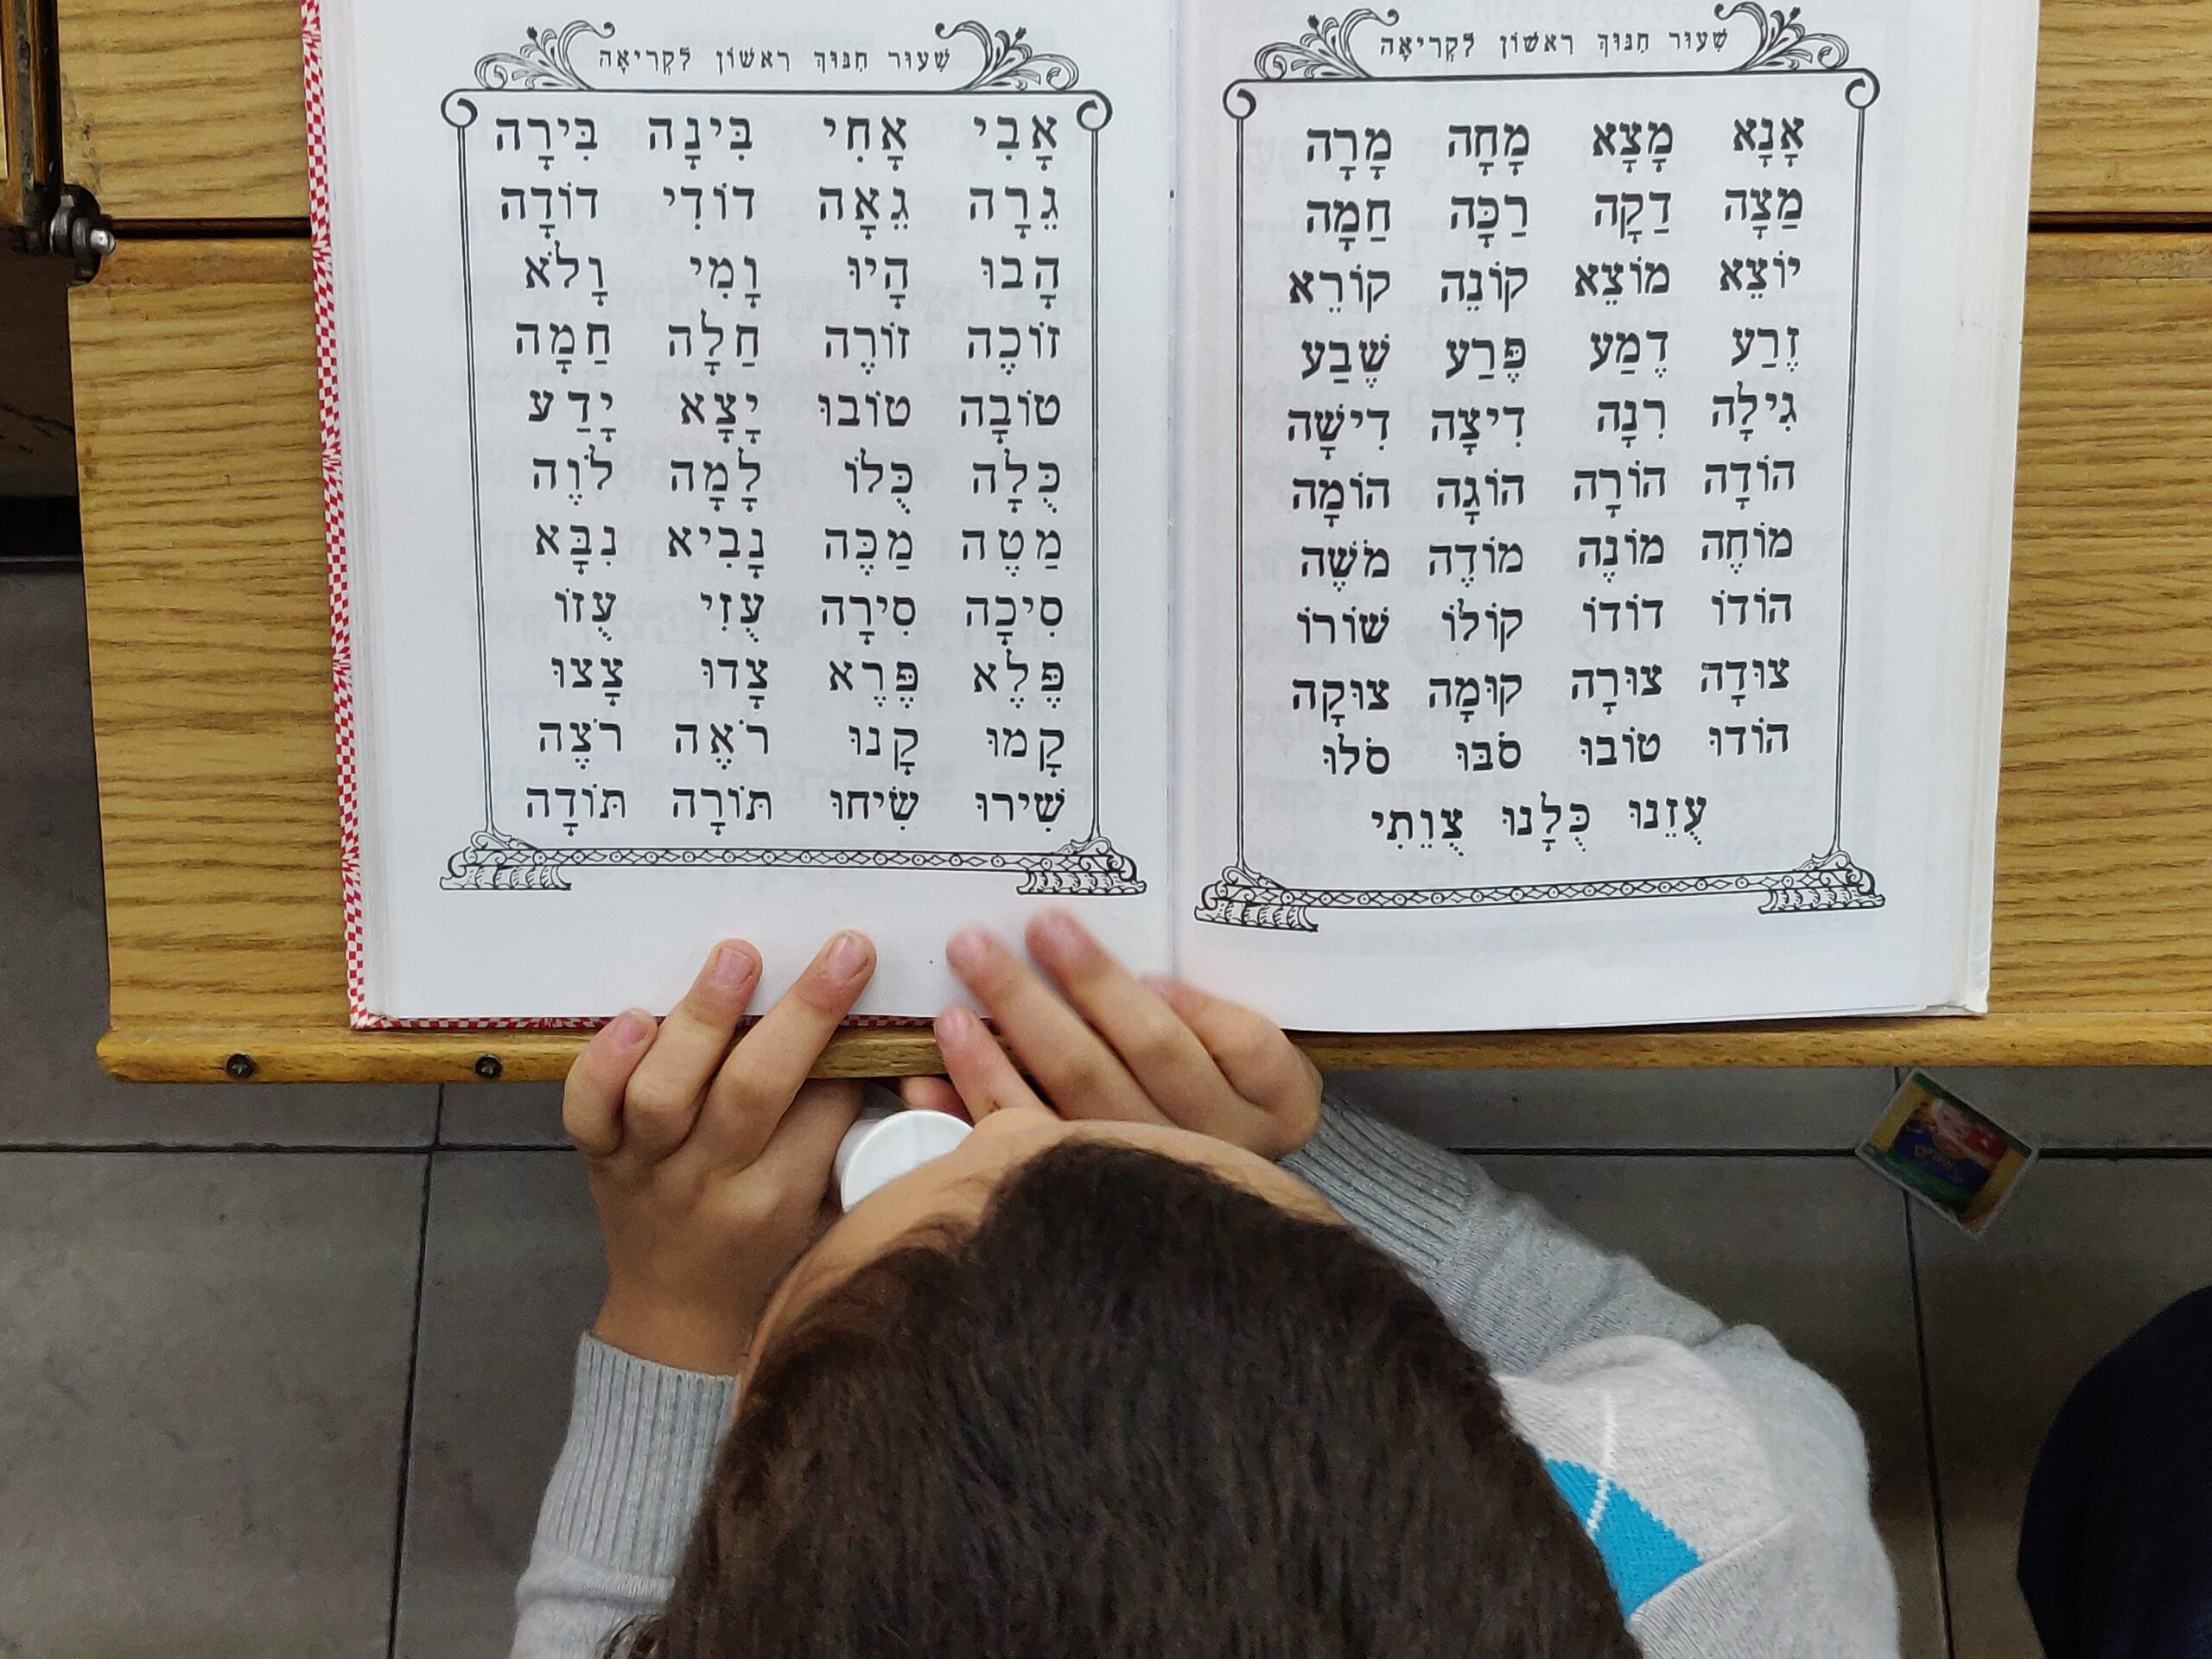 שִׁעוּר חִנּוּךְ רִאשׁוֹן לִקְרִיאָה
אָנָא מָצָא מָחָה מָרָה
מַצָּה דַקָּה רַכָּה חַמָּה
יוֹצֵא מוֹצֵא קוֹנֵה קוֹרֵא
זֶרַע דֶמַע פֶּרַע שֶׁבַע
גִילָה רִנָּה דִיצָה דִישָׁה
הוֹדָה הוֹרָה הוֹגָה הוֹמָה
מוֹחֶה מוֹנֶה מוֹדֶה מֹשֶׁה
הוֹדוֹ דוֹדוֹ קוֹלוֹ שׁוֹרוֹ
צוּדָה צוּרָה קוּמָה צוּקָה
הוֹדוּ טוֹבוּ סֹבּוּ סֹלּוּ
עֻזֵנוּ כֻּלָנוּ צֻוֵתִי
שִׁעוּר חִנּוּךְ רִאשׁוֹן לִקְרִיאָה
אָבִי אָחִי בִּינָה בִּירָה
גֵרָה גֵאָה דוֹדִי דוֹדָה
הָבוּ הָיוּ וָמִי וָלֹא
זוֹכֶה זוֹרֶה חַלָה חַמָה
טוֹבָה טוֹבוּ יָצָא יָדַע
כֻּלָה כֻּלוֹ לָמָה לֹוֶה
מַטֶה מַכֶּה נָבִיא נִבָּא
סִיכָה סִירָה עֻזִי עֻזוֹ
פֶּלֶא פֶּרֶא צָדוּ צָצוּ
קָמוּ קָנוּ רֹאֶה רֹצֶה
שִׁירוּ שִׂיחוּ תּוֹרָה תּוֹדָה